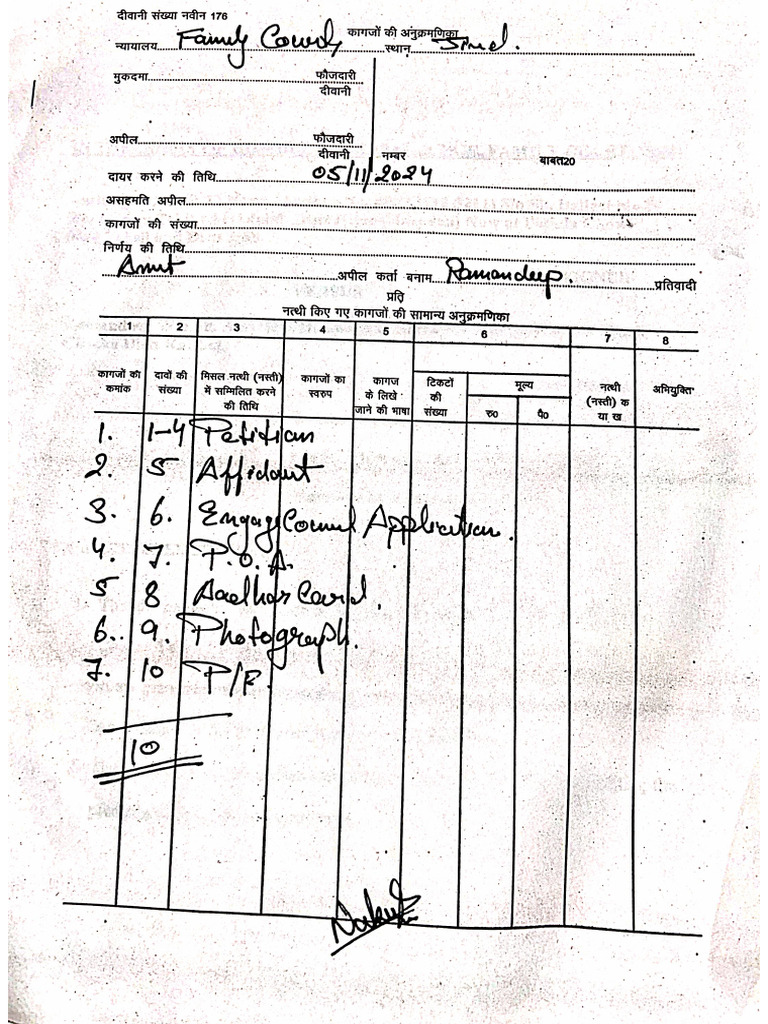 दीवानी संख्या नवीन 176
कागजों की अनुक्रमणिका
न्यायालय Family Court स्थान Jind.
मुकदमा फौजदारी
दीवानी
अपील फौजदारी
दीवानी नम्बर बाबत20
दायर करने की तिथि 05/11/2024
असहमति अपील
कागजों की संख्या
निर्णय की तिथि
Amit अपील कर्ता बनाम Ramandeep. प्रतिवादी
प्रति
नत्थी किए गए कागजों की सामान्य अनुक्रमणिका
1 2 3 4 5 6 7 8
कागजों की कमांक दावों की संख्या मिसल नत्थी (नस्ती) में सम्मिलित करने की तिथि कागजों का स्वरुप कागज के लिखे जाने की भाषा टिकटों की संख्या मूल्य रु0 पै0 नत्थी (नस्ती) क या ख अभियुक्ति
1. 1-4 Petition
2. 5 Affidavit
3. 6. Engage Counsel Application.
4. 7. P.O.A.
5 8 Aadhar Card.
6.. 9. Photograph.
7. 10 P/F.
10